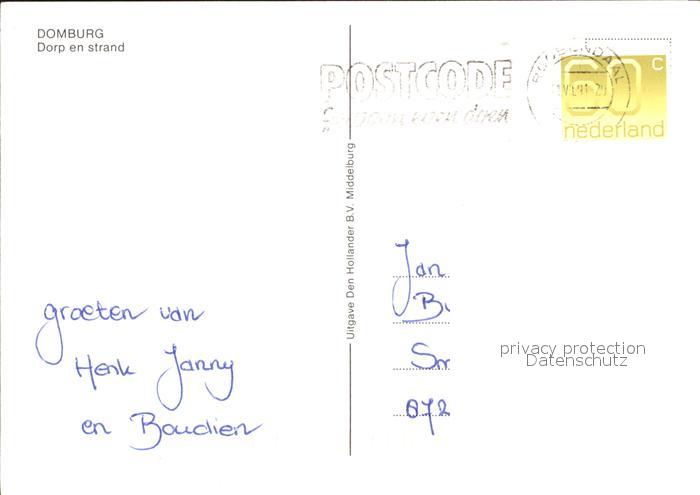 DOMBURG
Dorp en strand
POSTCODE
even doen
60 C
nederland
Uitgave Den Hollander B.V. Middelburg
groeten van
Henk Janny
en Boudien
Jan
privacy protection
Datenschutz